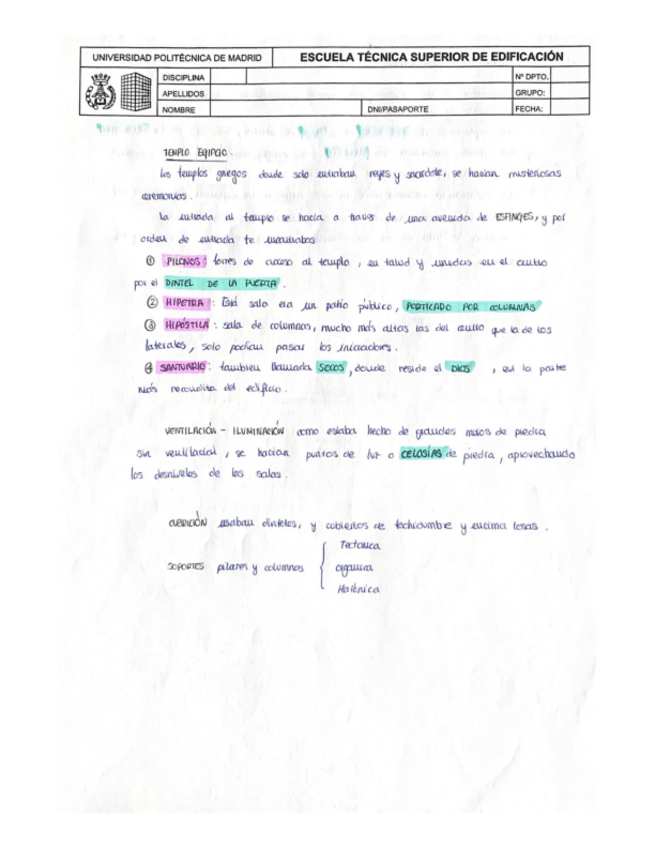 UNIVERSIDAD POLITÉCNICA DE MADRID
ESCUELA TÉCNICA SUPERIOR DE EDIFICACIÓN
DISCIPLINA
Nº DPTO.
APELLIDOS
GRUPO:
NOMBRE
DNI/PASAPORTE
FECHA:
TEMPLO EGIPCIO.
los templos griegos donde solo entraban reyes y sacerdote, se hacían misteriosas
ceremonias.
La entrada al templo se hacía a traves de una avenida de ESFINGES, y por
orden de entrada te encontrabas
① PILONOS: torres de acceso al templo, en talud y unidas en el centro
por el DINTEL DE LA PUERTA.
② HIPETRA: Está sala era un patio público, PORTICADO POR COLUMNAS
③ HIPÓSTILA: sala de columnas, mucho más altas las del centro que la de los
laterales, solo podian pasar los iniciadores.
④ SANTUARIO: tambien llamada SECOS, donde reside el DIOS, en la parte
más recondita del edificio.
VENTILACIÓN - ILUMINACIÓN como estaba hecho de grandes muros de piedra
sin ventilación, se hacian puntos de luz o CELOSÍAS de piedra, aprovechando
los desniveles de las salas.
CUBRICIÓN usaban dinteles, y cubiertos de techumbre y encima losas.
SOPORTES pilares y columnas